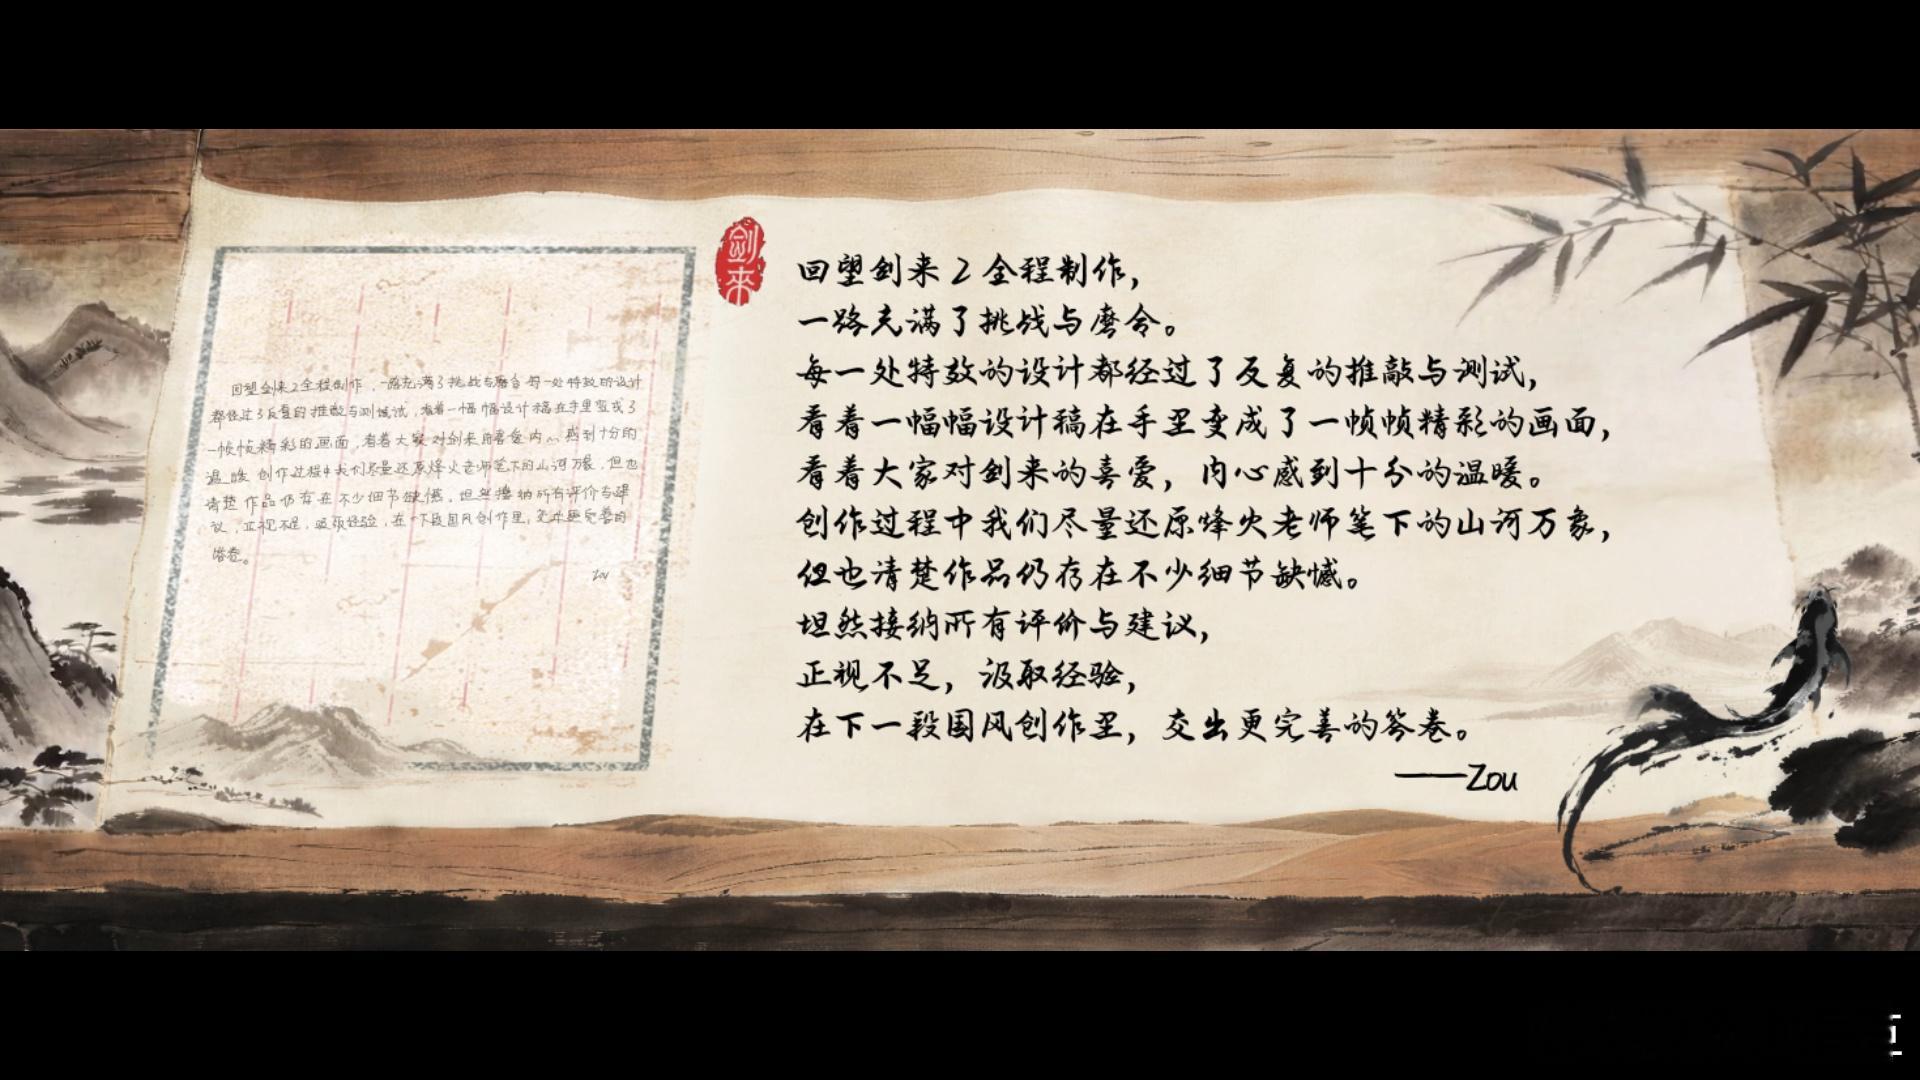 回望剑来2全程制作，一路充满了挑战与磨合每一处特效的设计
都经过了反复的推敲与测试，看着一幅幅设计稿在手里变成了
一帧帧精彩的画面，看着大家对剑来的喜爱内心感到十分的
温暖 创作过程中我们尽量还原烽火老师笔下的山河万象，但也
清楚作品仍存在不少细节缺憾，坦然接纳所有评价与建
议，正视不足，汲取经验，在下一段国风创作里，交出更完善的
答卷。
Zou
剑来
回望剑来2全程制作，
一路充满了挑战与磨合。
每一处特效的设计都经过了反复的推敲与测试，
看着一幅幅设计稿在手里变成了一帧帧精彩的画面，
看着大家对剑来的喜爱，内心感到十分的温暖。
创作过程中我们尽量还原烽火老师笔下的山河万象，
但也清楚作品仍存在不少细节缺憾。
坦然接纳所有评价与建议，
正视不足，汲取经验，
在下一段国风创作里，交出更完善的答卷。
——Zou